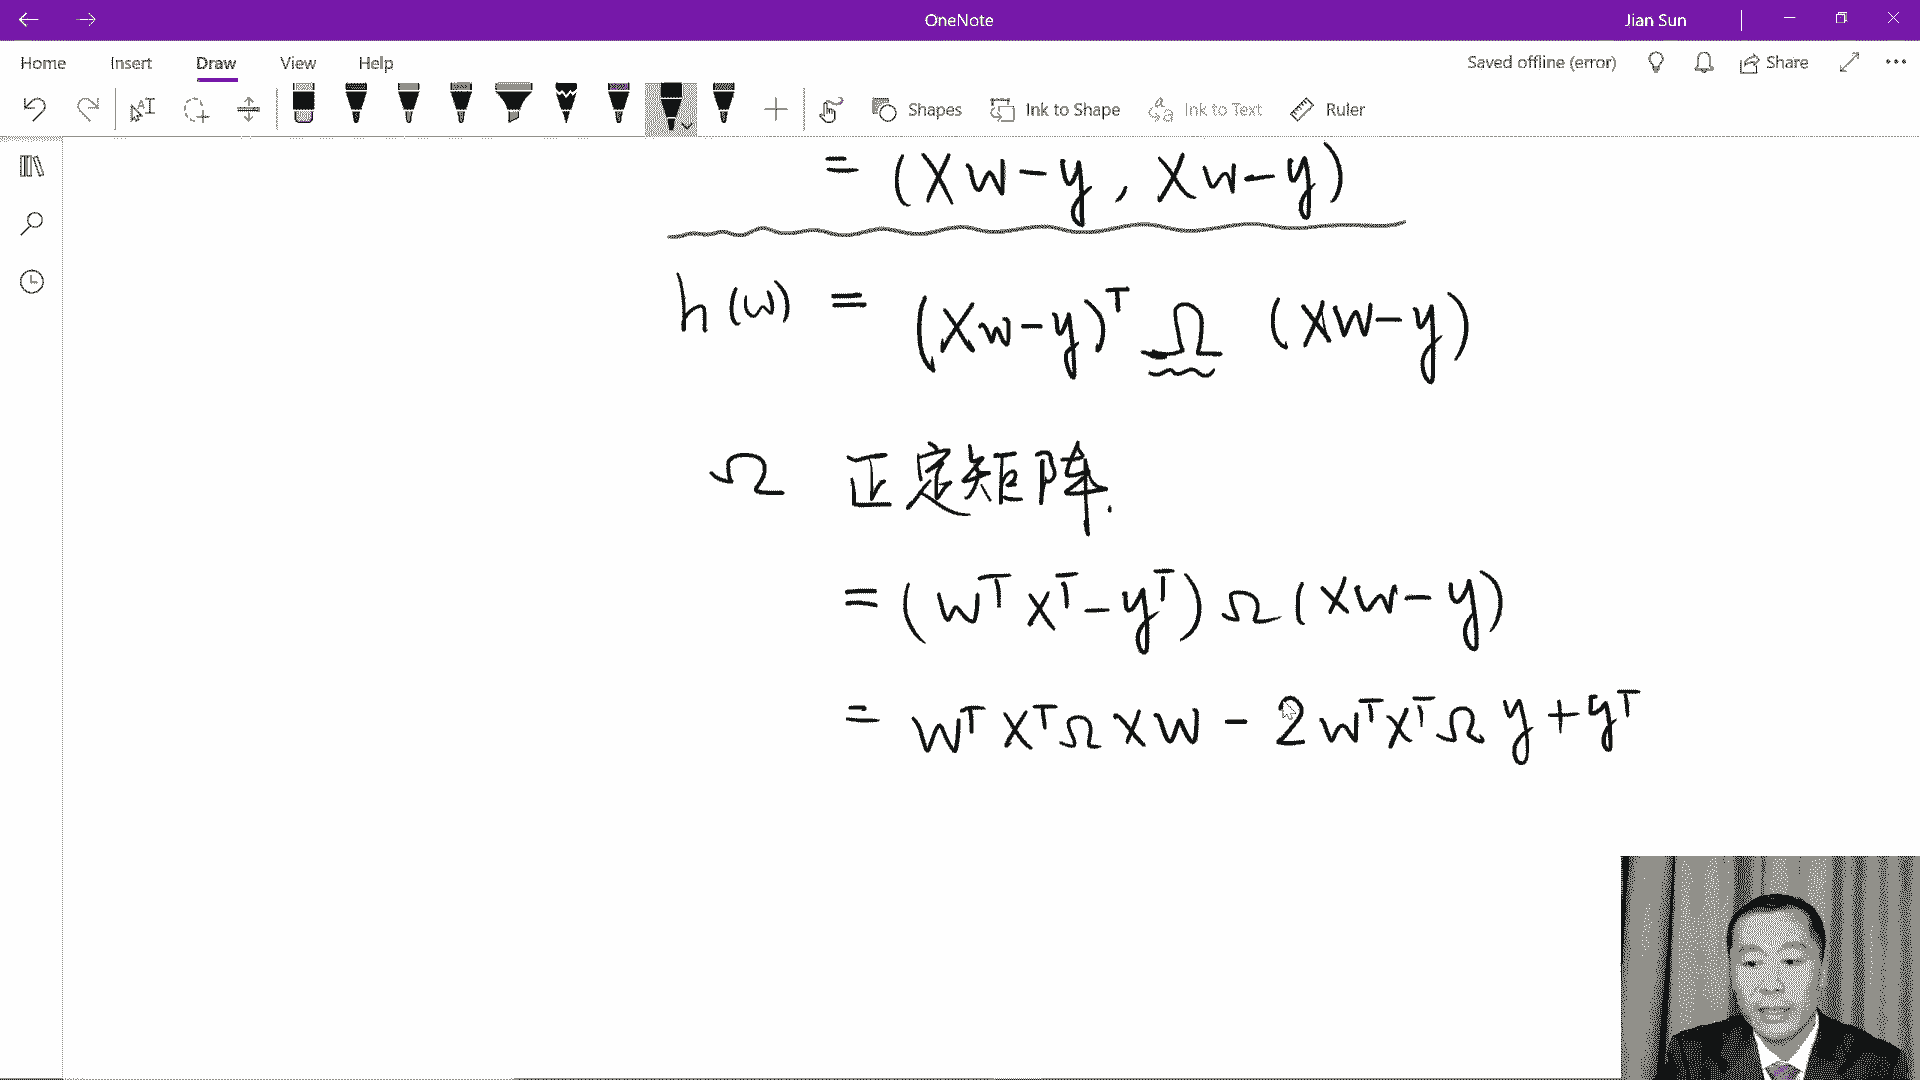 OneNote
Jian Sun
Home Insert Draw View Help
Saved offline (error)
Share
Shapes
Ink to Shape
Ink to Text
Ruler
= (Xw-y, Xw-y)
h(w) = (Xw-y)ᵀ Ω (Xw-y)
Ω 正定矩阵.
= (wᵀXᵀ-yᵀ)Ω(Xw-y)
= wᵀXᵀΩXw - 2wᵀXᵀΩy + yᵀ